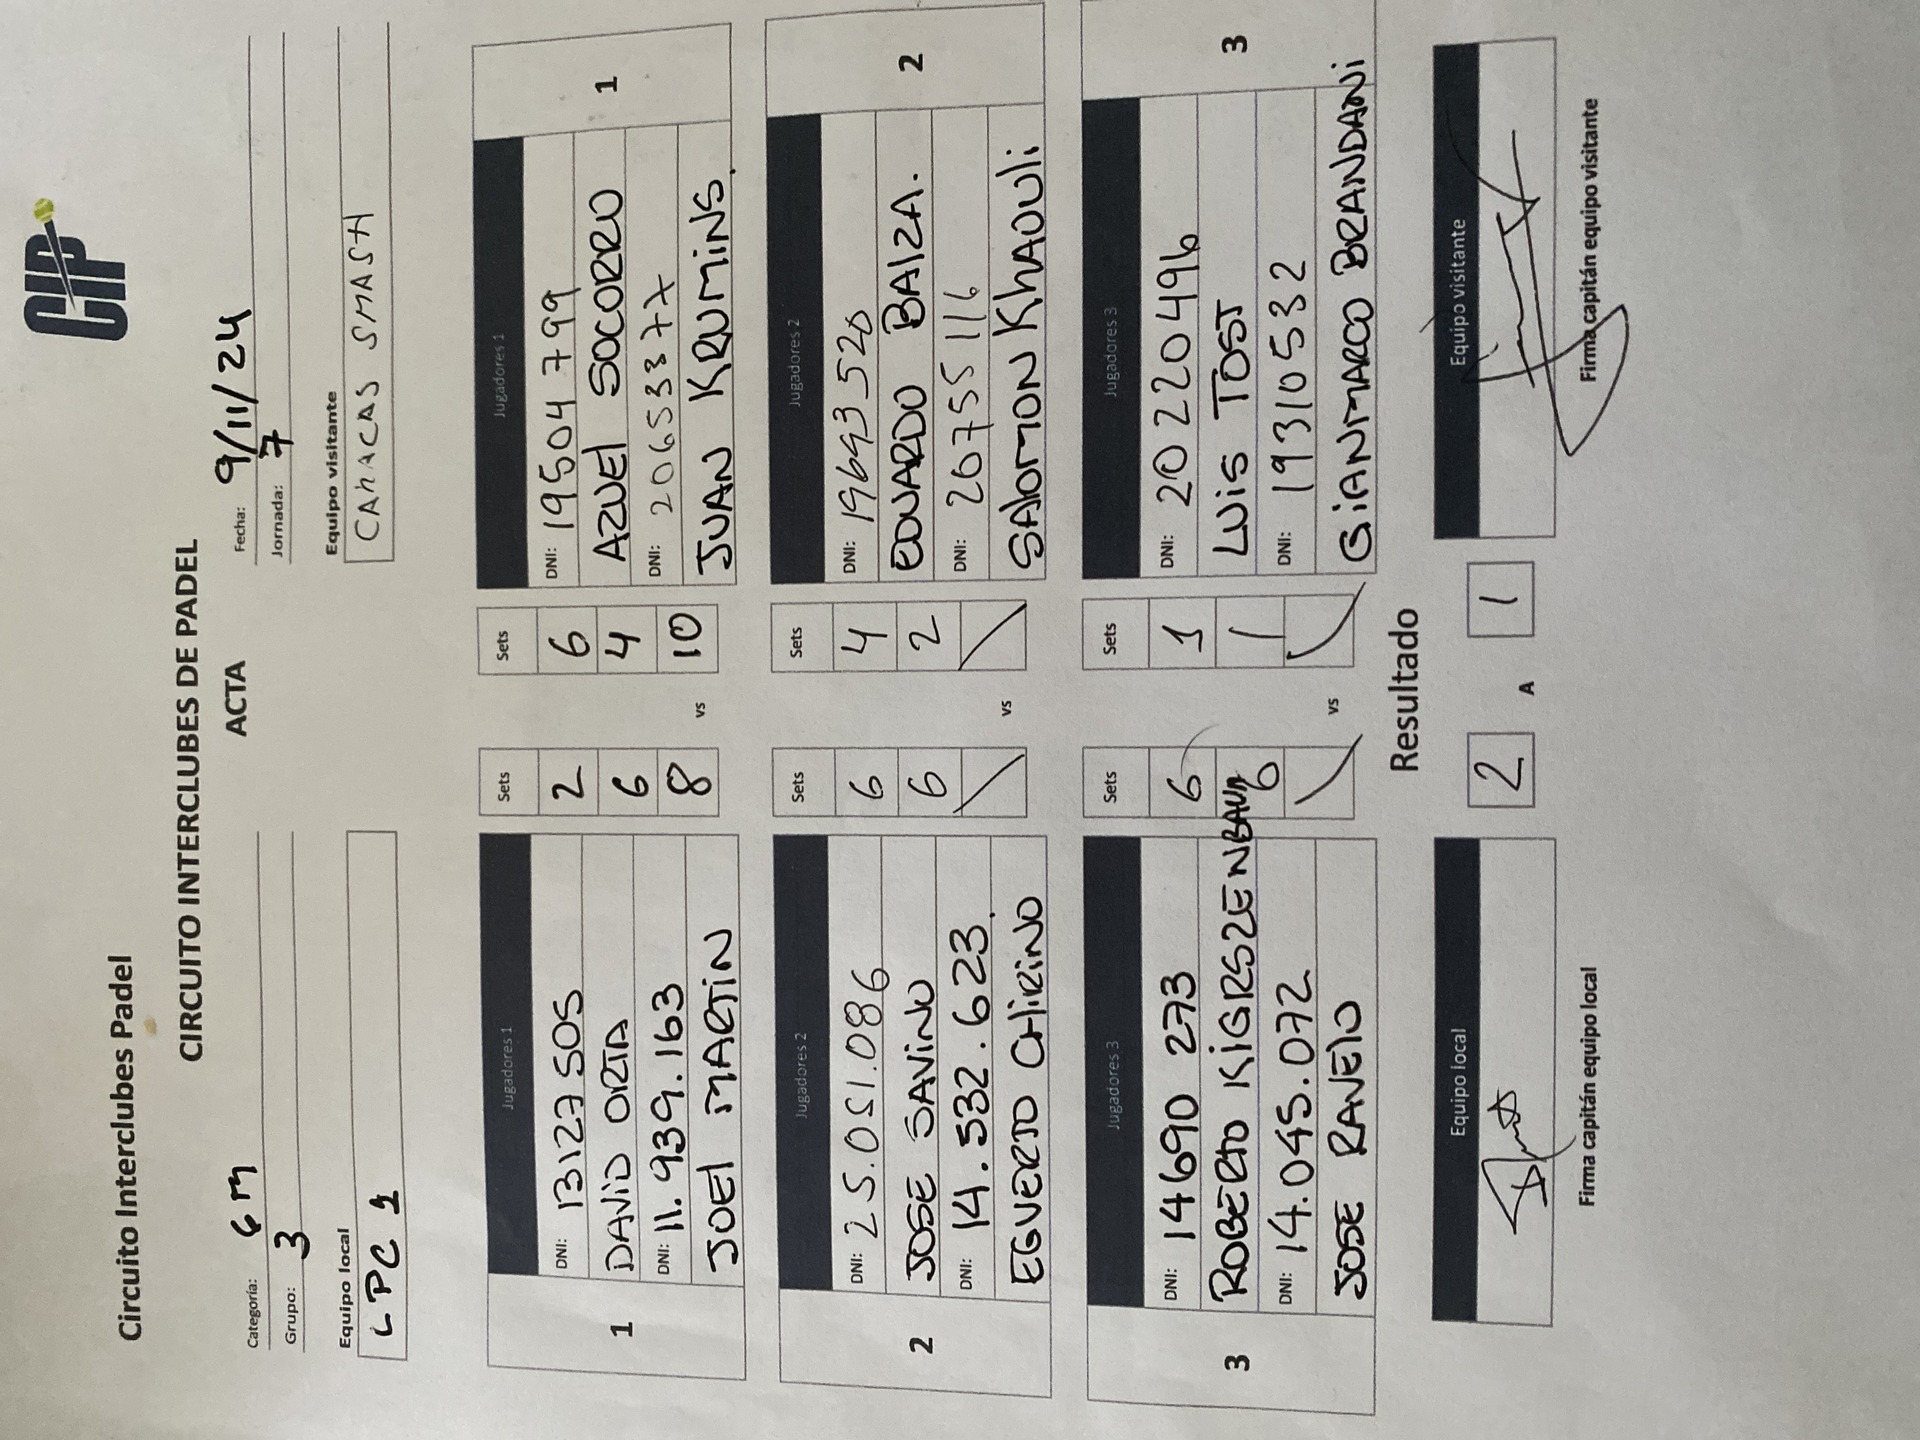 CIP
Circuito Interclubes Padel
CIRCUITO INTERCLUBES DE PADEL
ACTA
Categoría: 6 M
Fecha: 9/11/24
Grupo: 3
Jornada: 7
Equipo local
Equipo visitante
LPC 1
CARACAS SMASH
Jugadores 1 Sets Sets Jugadores 1
DNI: 13127505 2 6 DNI: 19504799
DAVID ORTA 6 4 AZUEL SOCORRO
DNI: 11.939.163 8 10 DNI: 20653377
JOEL MARTIN vs JUAN KRUMINS.
1 1
Jugadores 2 Sets Sets Jugadores 2
DNI: 25.051.086 6 4 DNI:
JOSE SAVINO 6 2 EDUARDO BAIZA.
DNI: 14.532.623. DNI: 20755116
EGUERTO CHIRINO vs SALOMON KHAOULI
2 2
Jugadores 3 Sets Sets Jugadores 3
DNI: 14690 273 6 1 DNI: 20220496
ROBERTO KIGRSZENBAUM 6 1 LUIS TOST
DNI: 14.045.072 DNI: 19310532
JOSE RAVELO vs GIANMARCO BRANDANI
3 3
Resultado
Equipo local 2 A 1 Equipo visitante
Firma capitán equipo local
Firma capitán equipo visitante